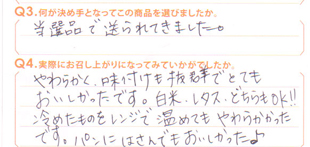 Q3.何が決め手となってこの商品を選びましたか。
当選品で送られてきました。
Q4.実際にお召し上がりになってみていかがでしたか。
やわらかく、味付けも抜群でとても
おいしかったです。白米、レタス、どちらもOK!!
冷めたものをレンジで温めてもやわらかかった
です。パンにはさんでもおいしかった♪